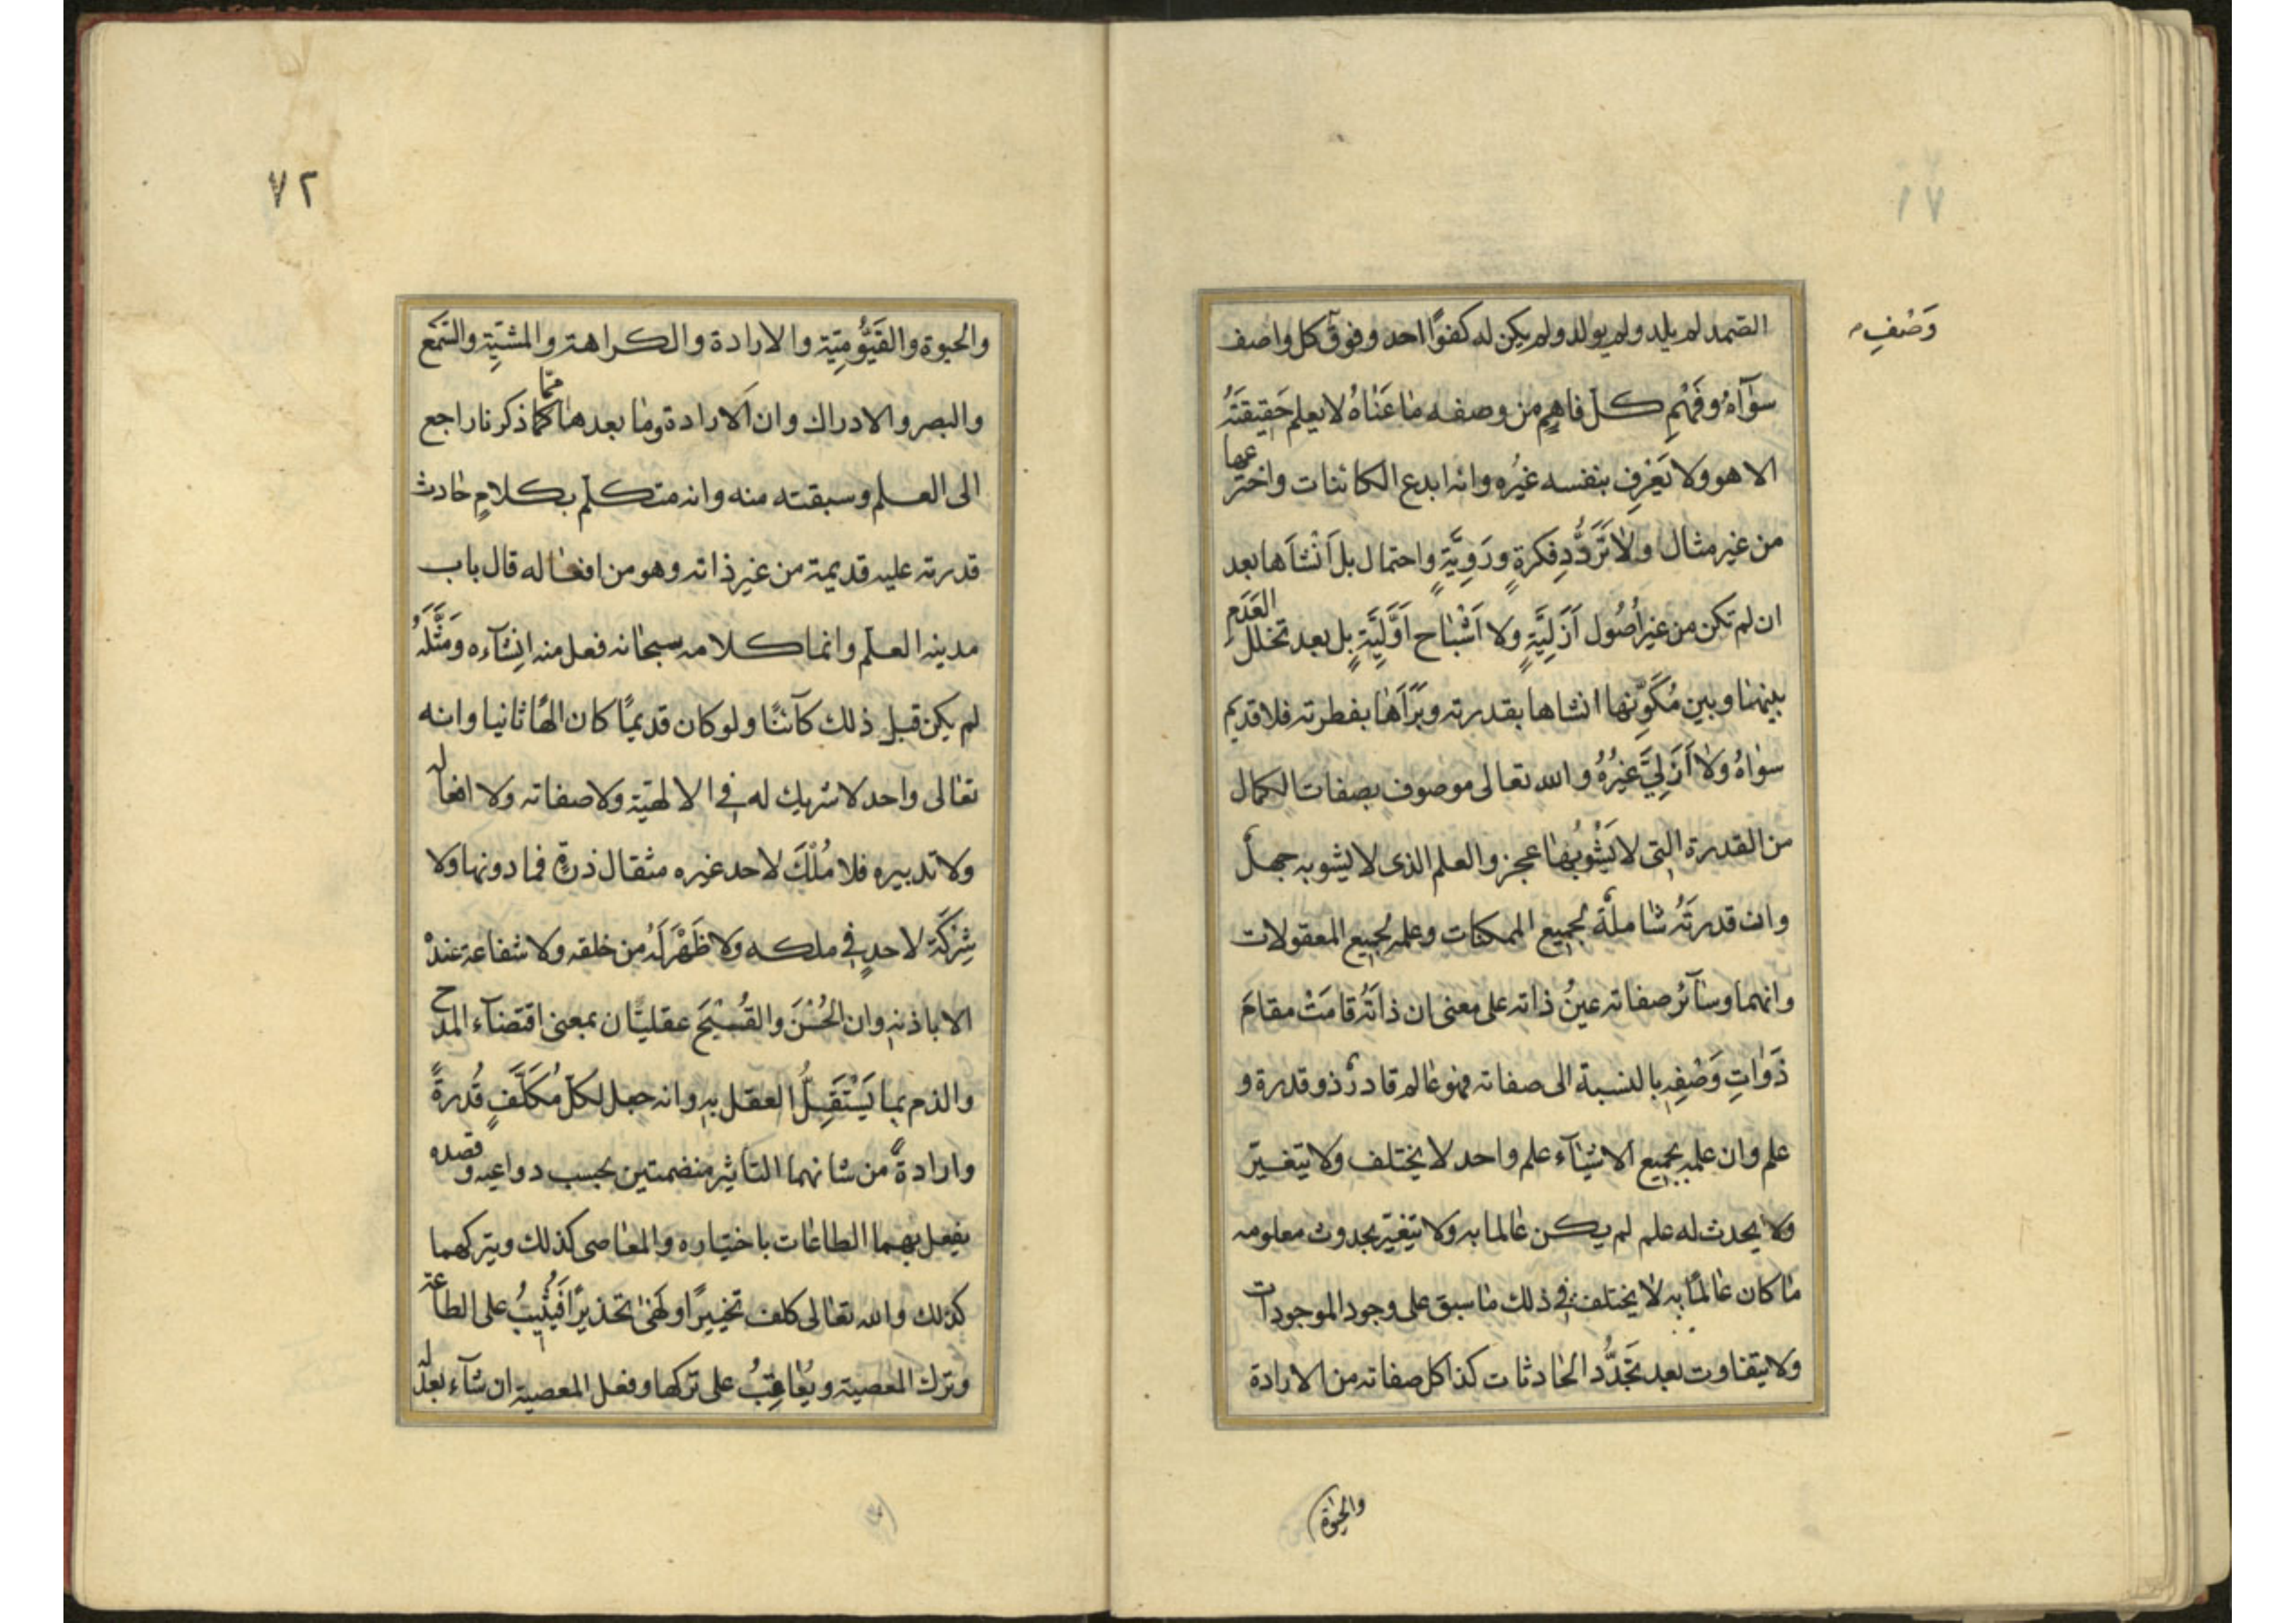 ٧١
وَصْفِ
الصمد لم يلد ولم يولد ولم يكن له كفوًا احد وفوق كل واصف
سوٰآهُ وفَهْمِ كل فاهمٍ من وصفه مٰا عَنٰاهُ لا يعلم حَقِيقَتَهُ
الا هو ولا يَعْرِف بنفسه غيرُه وانه ابدع الكائنات واخترعها
من غير مثال ولٰا تَرَدُّدِ فكرةٍ ورَوِيَّةٍ واحتمال بل اَنْشَاَها بعد
ان لم تكن من غير اُصُول اَزَلِيَّةٍ ولا اَشْبٰاح اَوَّلِيَّةٍ بل بعد تخلل العَدَمِ
بينهٰا وبين مُكَوِّنِها انشاها بقدرته وبَرَاَهٰا بفطرته فلا قديم
سوٰاهُ ولٰا اَزَلِيَّ غيرُهُ والله تعالى موصوف بصفات الكمال
من القدرة التي لا يَشُوبُهٰا عجز والعلم الذى لا يشوبه جهل
وان قدرتَهُ شٰاملةٌ لجميع الممكنات وعلمه لجميع المعقولات
وانهما وسٰآئرُ صفاته عينُ ذاته على معنى ان ذاتَهُ قامَتْ مقامَ
ذَوٰاتِ وَصْفِهِ بالنسبة الى صفاته فهو عٰالم قادرٌ ذو قدرة و
علم وان علمه بجميع الاشيٰآء علم واحد لا يختلف ولا يتغيّر
ولا يحدث له علم لم يكن عٰالما به ولا يتغيّر بحدوث معلومه
مٰا كان عٰالمًا به لٰا يختلف فى ذلك مٰا سبق على وجود الموجودات
ولا يتفاوت بعد تَجَدُّد الحٰادثات كذا كل صفاته من الارادة
والحيٰوة
٧٢
والحيوة والقَيُّومِيَّة والارادة والكراهة والمشيّة والسَّمَع
والبصر والادراك وان الارادة ومٰا بعدهٰا ممّا كما ذكرنا راجع
الى العلم وسبقته منه وانه متكلّم بكلامٍ حٰادث
قدرته عليه قديمة من غير ذاته وهو من افعٰاله قال باب
مدينة العلم وانما كلامه سبحٰانه فعل منه انشٰآءه ومَثَّلَهُ
لم يكن قبل ذلك كآئنًا ولو كان قديمًا كان الهًا ثانيا وانه
تعٰالى واحد لا شريك له فى الالٰهيّة ولا صفاته ولا افعاله
ولا تدبيره فلا مُلْكَ لاحد غيره مثقال ذرةٍ فما دونها ولا
شِرْكَةَ لاحدٍ فى ملكه ولا ظَهْرَ لَهُ من خلقه ولا شفاعة عندهُ
الا باذنه وان الحُسْنَ والقُبْحَ عقليّان بمعنى اقتضآء المدح
والذم بمٰا يَسْتَقِلُّ العقل به وانه جعل لكل مُكَلَّفٍ قُدرةً
وارادةً من شانهما التٰاثير منضمتين بحسب دواعيه وقصده
يفعل بهما الطاعٰات باختياره والمعٰاصى كذلك ويتركهما
كذلك والله تعٰالى كلف تخييرًا ونَهٰى تحذيرًا فَيُثِيبُ على الطاعة
وترك المعصية ويُعٰاقِبُ على تركها وفعل المعصية ان شآء بعدله